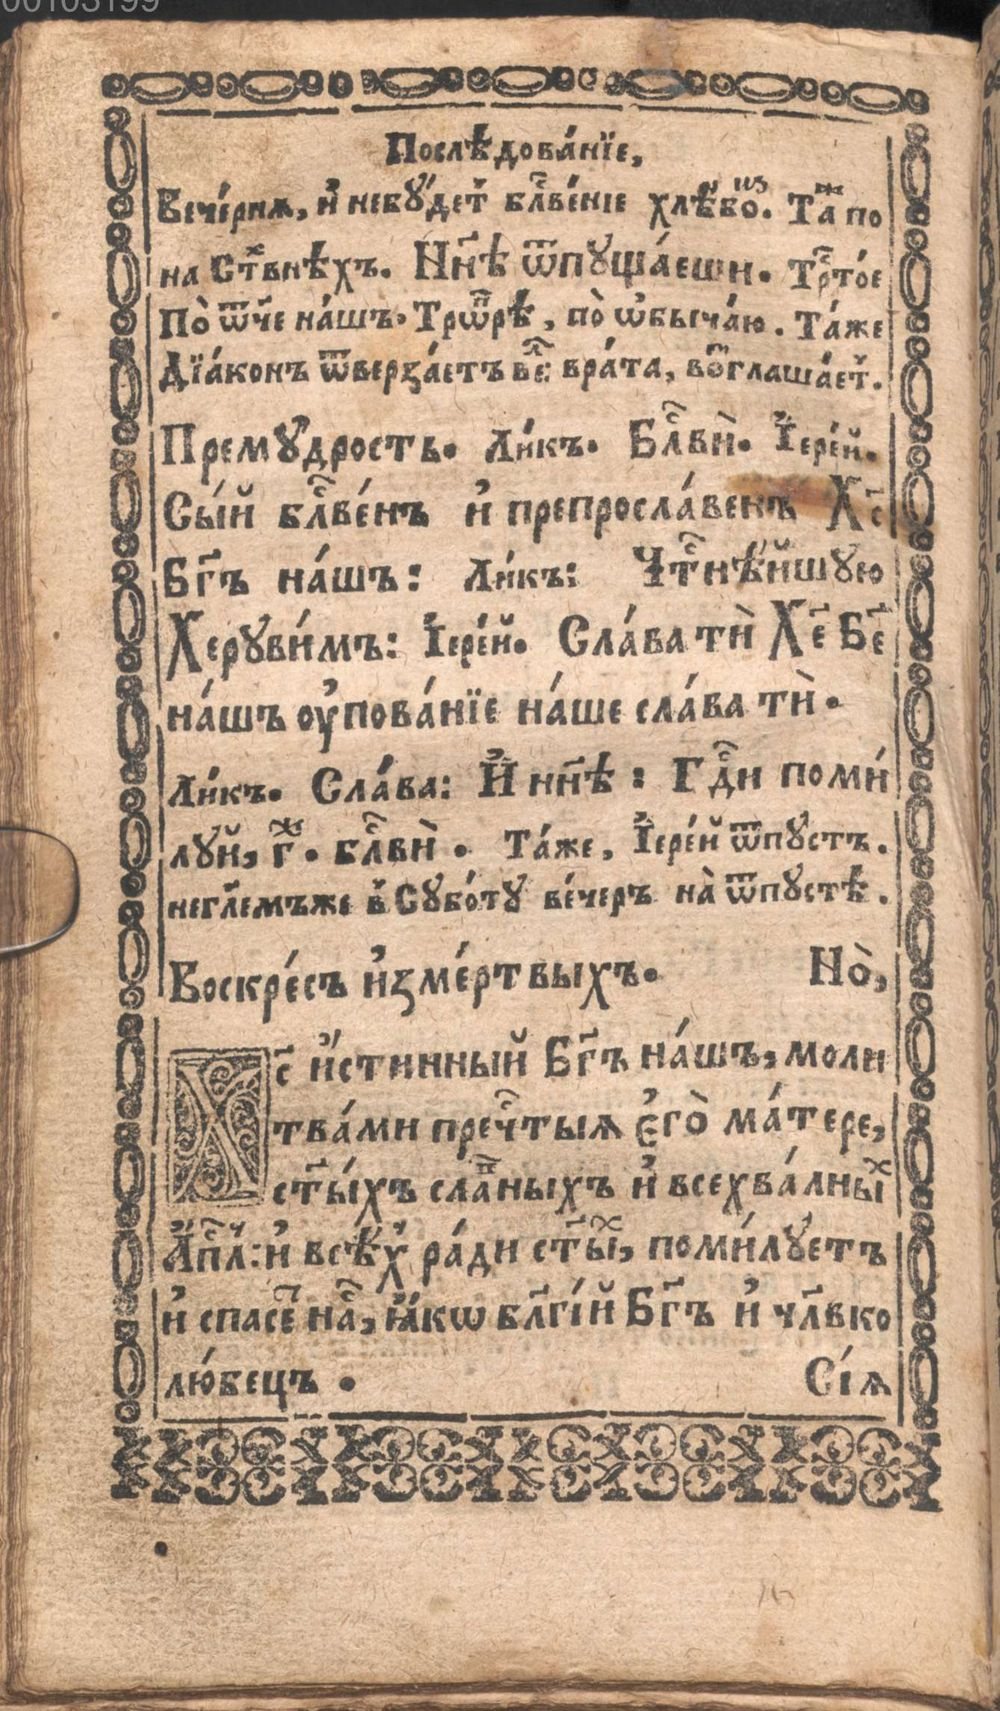 00103199
Послѣдова́нїе,
Вече́рнѧ, и҆ небꙋ́детⷮ блⷭ҇ве́нїе хлѣ́бѡⷡ. Таⷤ по
на Стⷯвнѣхъ. Нн҃ѣ ѿпꙋща́еши. Трⷭ҇то́е
По̀ ѿч҃е на́шъ, Трѡⷫ҇рѣ́, по̀ ѡ҆быча́ю. Та́же
Дїа́конъ ѿверза́етъ веⷧ҇: вра́та, воⷥглаша́етⷮ.
Премꙋ́дрость. Ли́къ. Блⷭ҇вѝ. І҆ере́й.
Сы́й блⷭ҇ве́нъ и҆ препросла́венъ Хс҃
Бг҃ъ на́шъ: Ли́къ: Чтⷭ҇нѣ́йшꙋю
Херꙋви́мъ: І҆ере́й. Сла́ва тѝ Хе҃ Бе҃
на́шъ ѹ҆пова́нїе на́ше сла́ва тѝ.
Ли́къ. Сла́ва: И҆ нн҃ѣ: Гдⷭ҇и поми́
лꙋй, г҃ⷤ. блⷭ҇вѝ. Та́же, І҆ере́й ѿпꙋстъ.
негл҃емъже в̾ Сꙋбо́тꙋ ве́черъ на̀ ѿпꙋстѣ.
Воскре́съ и҆зме́ртвыхъ. Но̀,
Хс҃ и҆́стинный Бг҃ъ на́шъ, моли
тва́ми пречⷭ҇тыѧ є҆гѡ̀ ма́тере,
ст҃ы́хъ слаⷡ҇ныхъ и҆ всехва́лныⷯ
А҆пⷭ҇лⷱ: и҆ всѣ́хⷯ ра́ди ст҃ы́ⷯ, поми́лꙋетъ
и҆ спасе҃ наⷭ҇, ꙗ҆́кѡ бл҃гі́й Бг҃ъ и҆ чл҃вко
лю́бецъ. Сі́ѧ